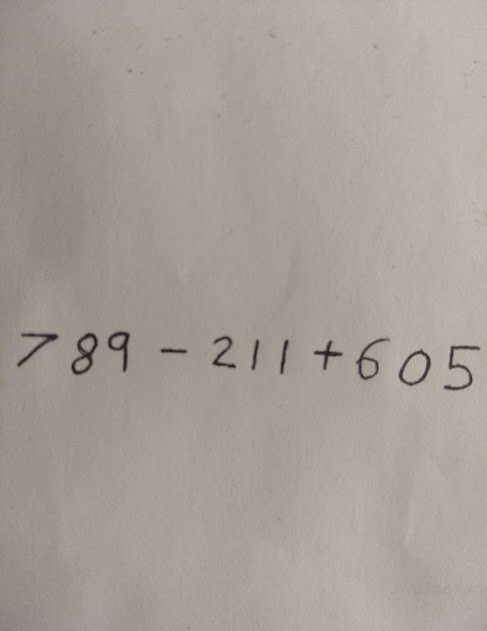 789 - 211 + 605